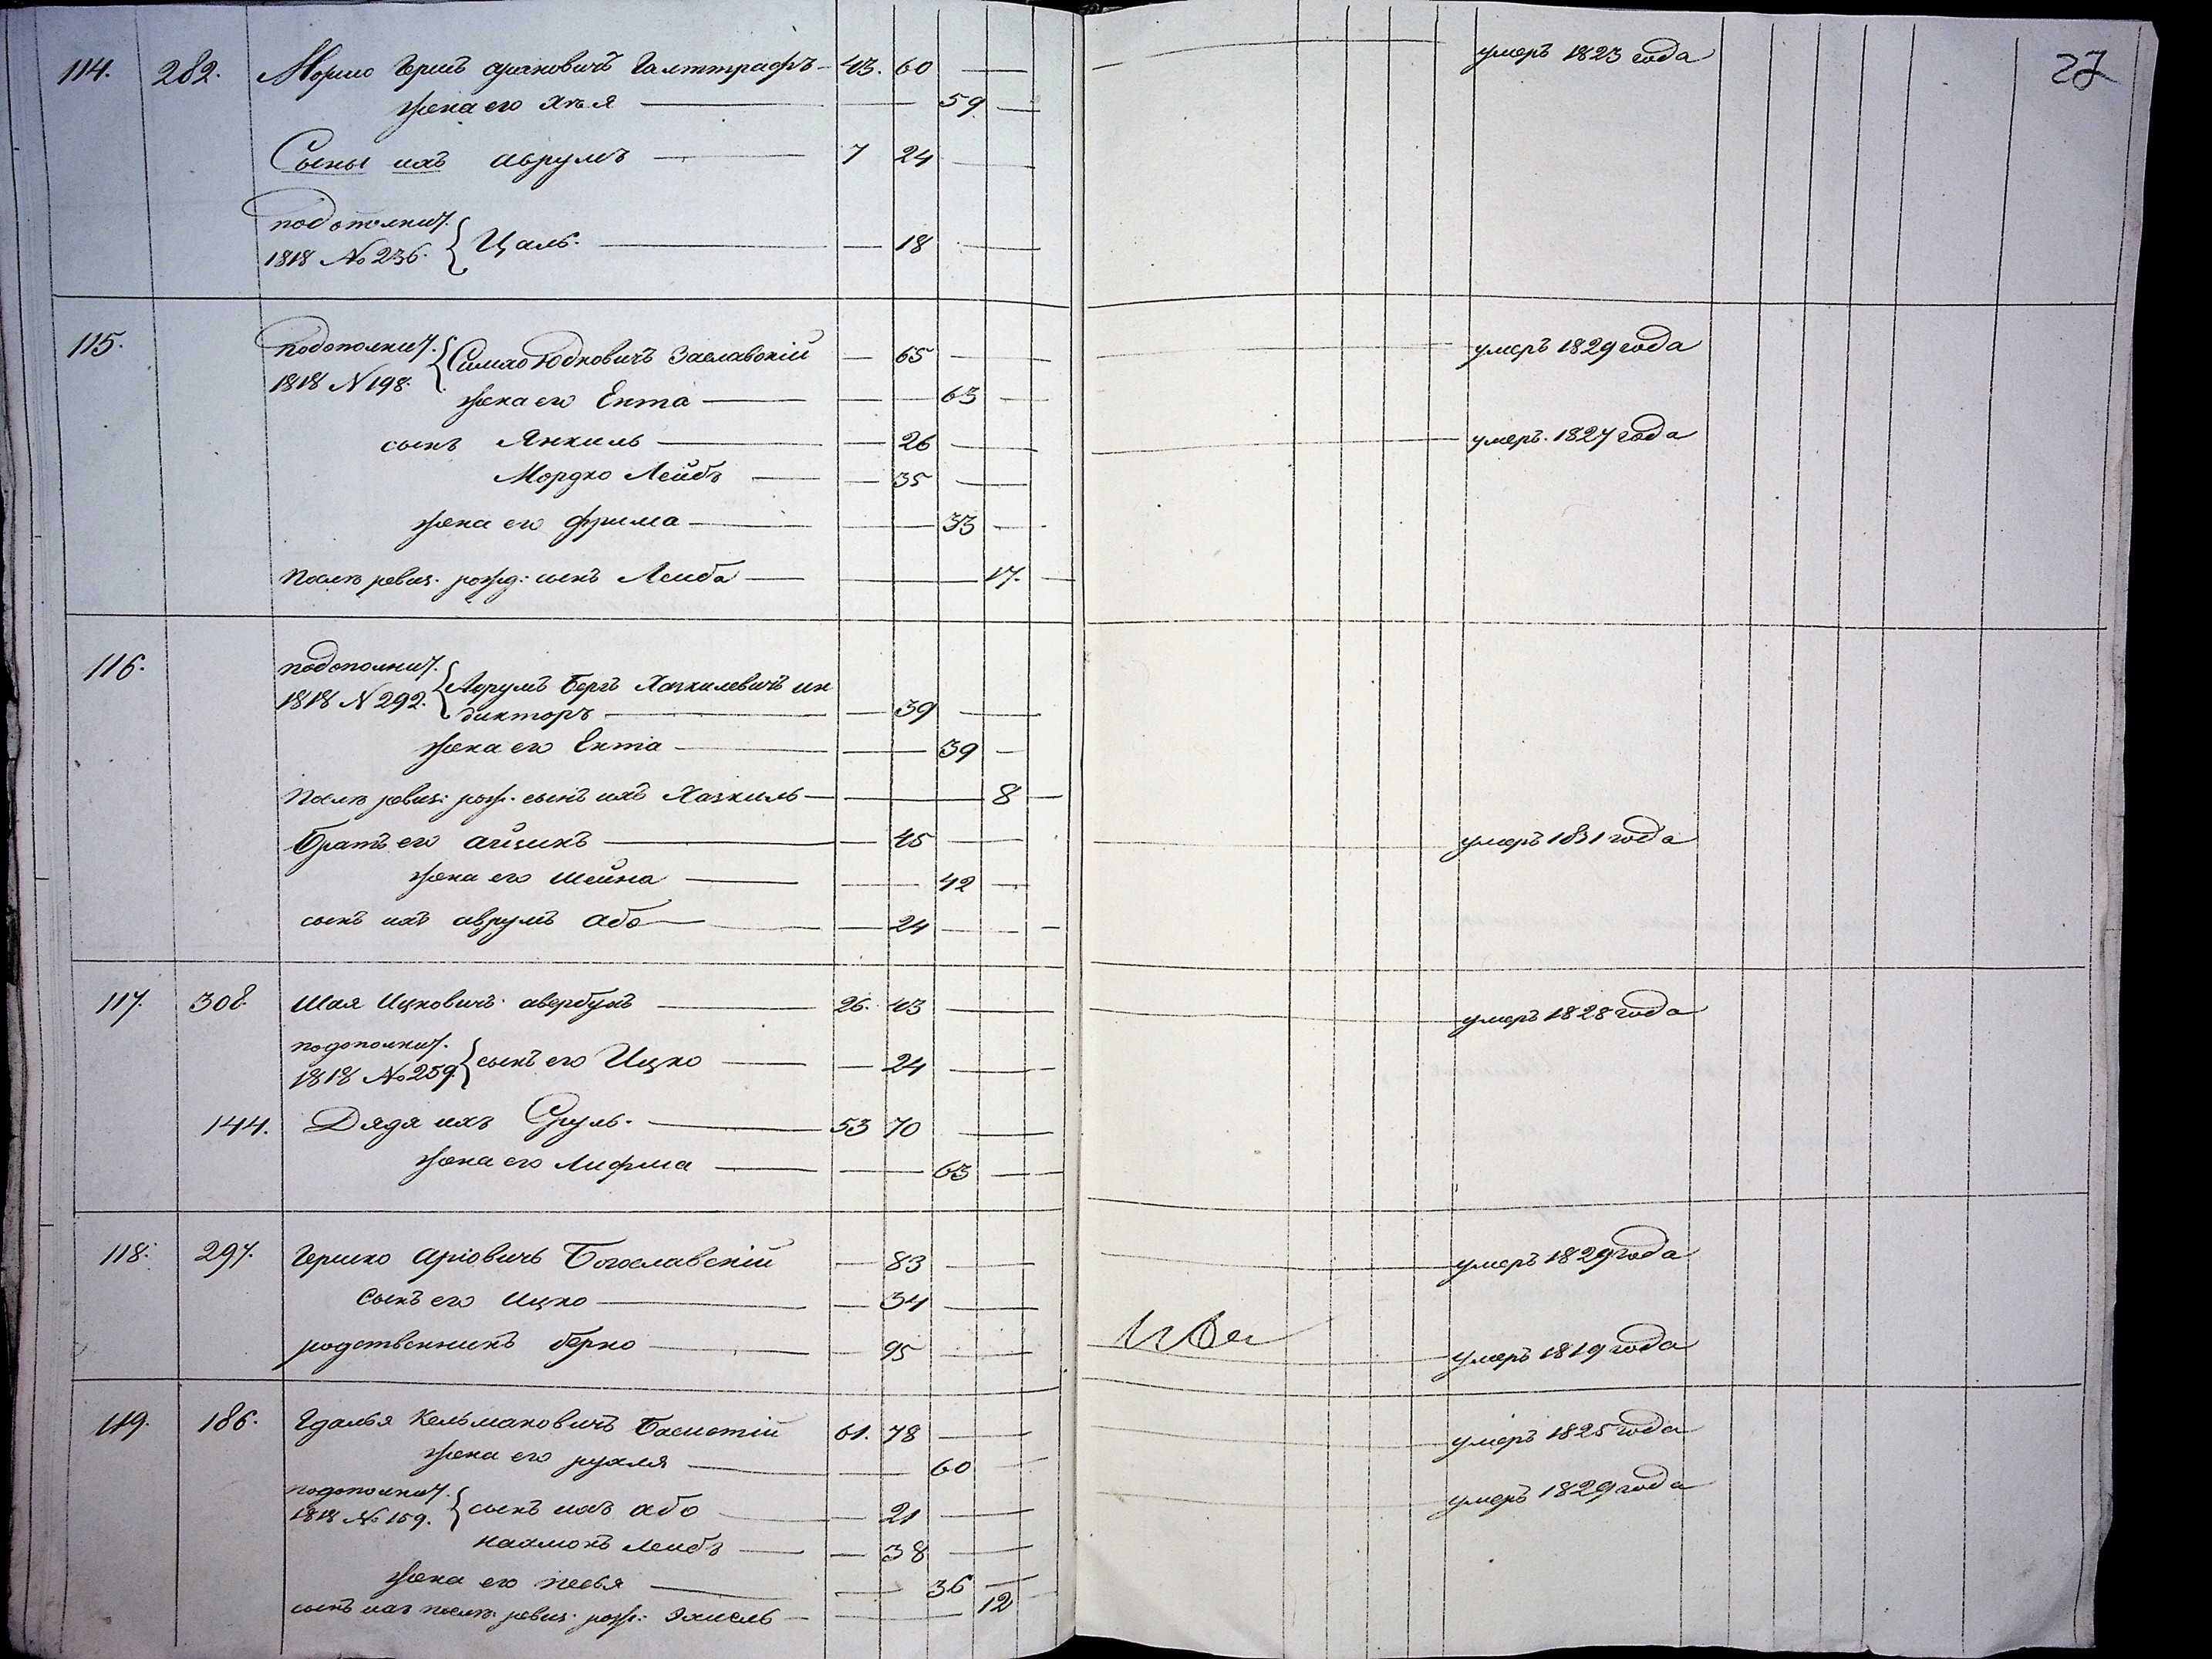 114. 282. Мошко Герш Срулковичъ Галттрафъ 43. 60 умеръ 1823 года 27
жена его Хая 59
Сыны ихъ Аврумъ 7 24
подополнит.
1818 № 236. Цаль. 18
115. подополнит. Симхо Юдковичъ Заславскій 65 умеръ 1829 года
1818 № 198.
жена его Ента 63
сынъ Янкиль 26 умеръ 1827 года
Мордко Лейбъ 35
жена его Фрима 33
Послѣ ревиз. рожд: сынъ Лейба 17.
116. подополнит.
1818 № 292. Аврумъ Беръ Хаскилевичъ ин
дикторъ 39
жена его Ента 39
Послѣ ревиз: рожд. сынъ ихъ Хаскиль 8
Братъ его Айзикъ 45 умеръ 1831 года
жена его Шейна 42
сынъ ихъ Аврумъ Або 24
117. 308. Шая Ицковичъ Авербухъ 26. 43 умеръ 1828 года
подополнит.
1818 № 259 сынъ его Ицко 24
144. Дядя ихъ Сруль. 53 70
жена его 63
118. 297. Гершко Аріовичъ Богославскій 83 умеръ 1829 года
Сынъ его Ицко 34
родственникъ Берко 95 умеръ 1819 года
119. 186. Гдалья Кельмановичъ 61. 78 умеръ 1825 года
жена его Рухля 60
подополнит.
1818 № 159. сынъ ихъ Або 21 умеръ 1829 года
Нахмонъ Лейбъ 38
жена его Песья 36
сынъ ихъ послѣ ревиз: рожд: 12